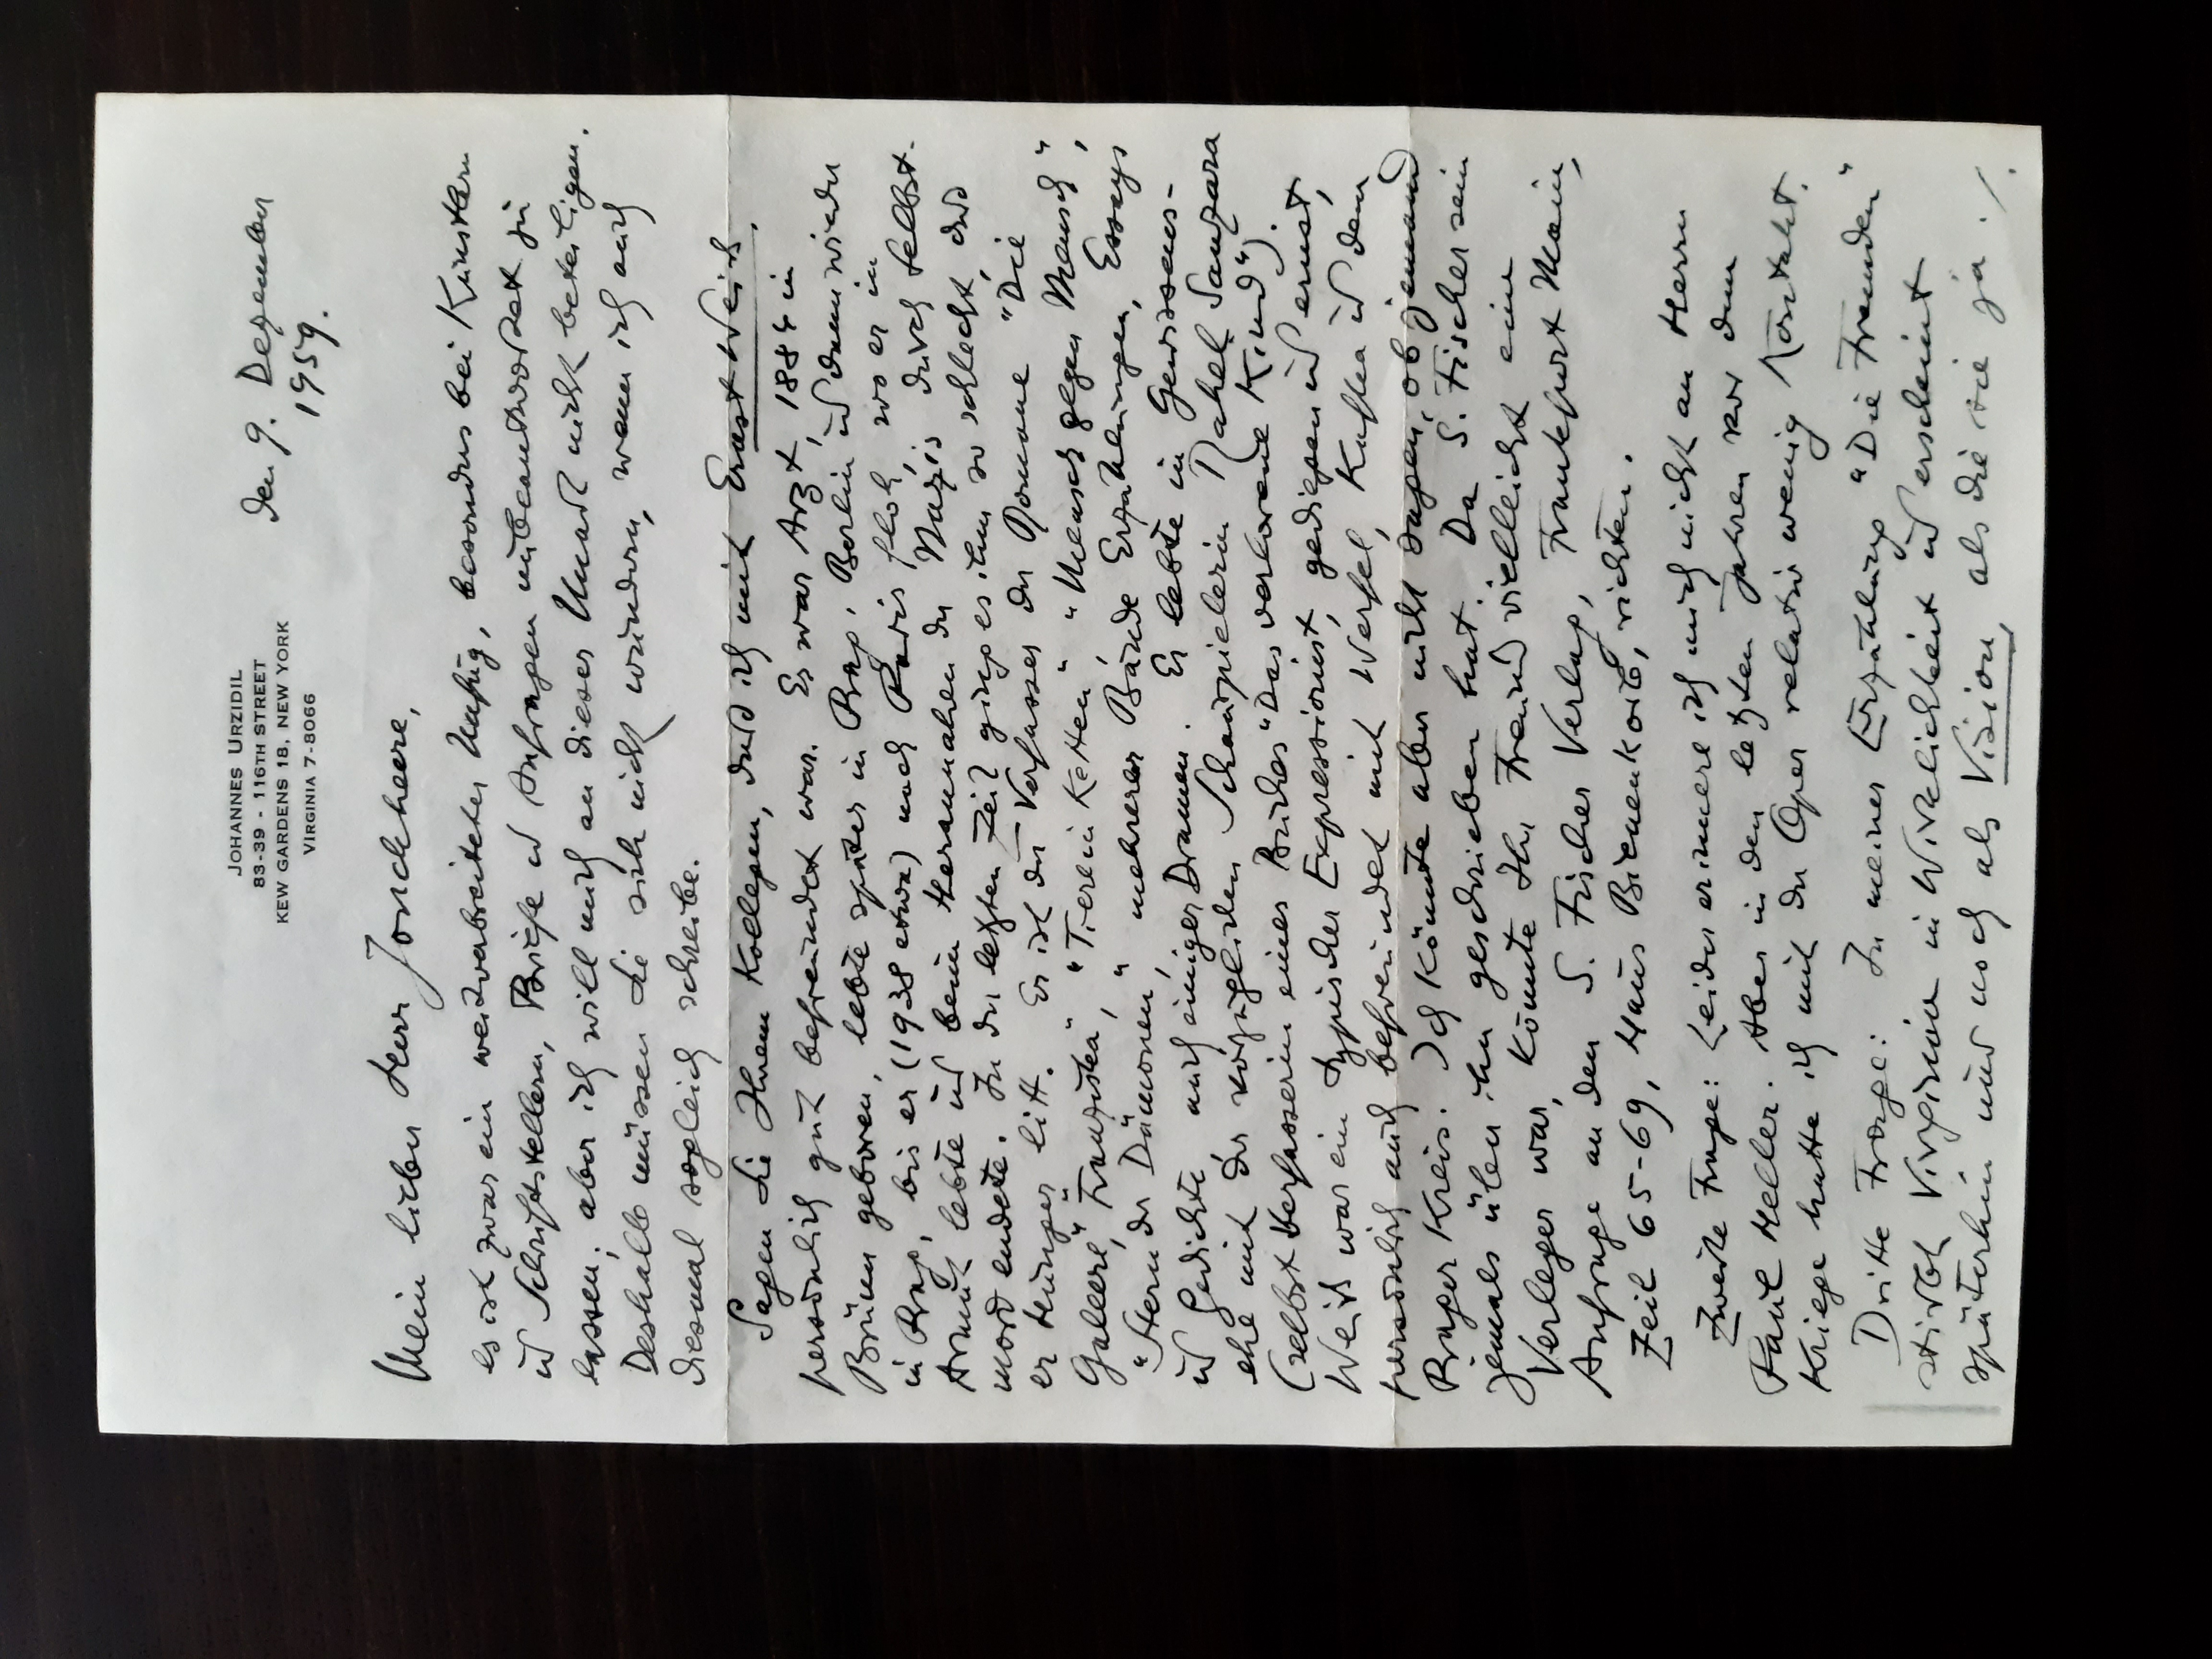 JOHANNES URZIDIL
83-39 - 116TH STREET
KEW GARDENS 18, NEW YORK
VIRGINIA 7-8066
den 9. Dezember
1959.
Mein lieber Herr Jonckheere,
es ist zwar ein weitverbreiteter Unfug, besonders bei Künstlern
u Schriftstellern, Briefe u Anfragen unbeantwortet zu
lassen; aber ich will mich an dieser Unart nicht beteiligen.
Deshalb müssen Sie sich nicht wundern, wenn ich auch
diesmal sogleich schreibe.
Sagen Sie Ihrem Kollegen, dass ich mit Ernst Weiß
persönlich gut befreundet war. Er war Arzt, 1884 in
Brünn geboren, lebte später in Prag, Berlin u dann wieder
in Prag, bis er (1938 etwa) nach Paris floh, wo er in
Armut lebte und beim Herannahen der Nazis durch Selbst-
mord endete. In der letzten Zeit ging es ihm so schlecht, dass
er Hunger litt. Er ist der Verfasser der Romane "Die
Galeere", "Franziska", "Tiere in Ketten", "Mensch gegen Mensch",
"Stern der Dämonen", mehrerer Bände Erzählungen, Essays
u Gedichte auch einiger Dramen. Er lebte in Gewissens-
ehe mit der vorzüglichen Schauspielerin Rahel Sanzara
(selbst Verfasserin eines Buches "Das verlorene Kind").
Weiß war ein typischer Expressionist, gediegen u ernst,
persönlich auch befreundet mit Werfel, Kafka u dem
Prager Kreis. Ich könnte aber nicht sagen, ob jemand
jemals über ihn geschrieben hat. Da S. Fischer sein
Verleger war, könnte Ihr Freund vielleicht eine
Anfrage an den S. Fischer Verlag, Frankfurt Main,
Zeil 65-69, Haus Bienenkorb, richten.
Zweite Frage: Leider erinnere ich mich nicht an Herrn
Paul Heller. Aber in den letzten Jahren vor dem
Kriege hatte ich mit der Oper relativ wenig Kontakt.
Dritte Frage: In meiner Erzählung "Die Fremden"
stirbt Virginia in Wirklichkeit u erscheint
späterhin nur noch als Vision, als die sie ja ./.